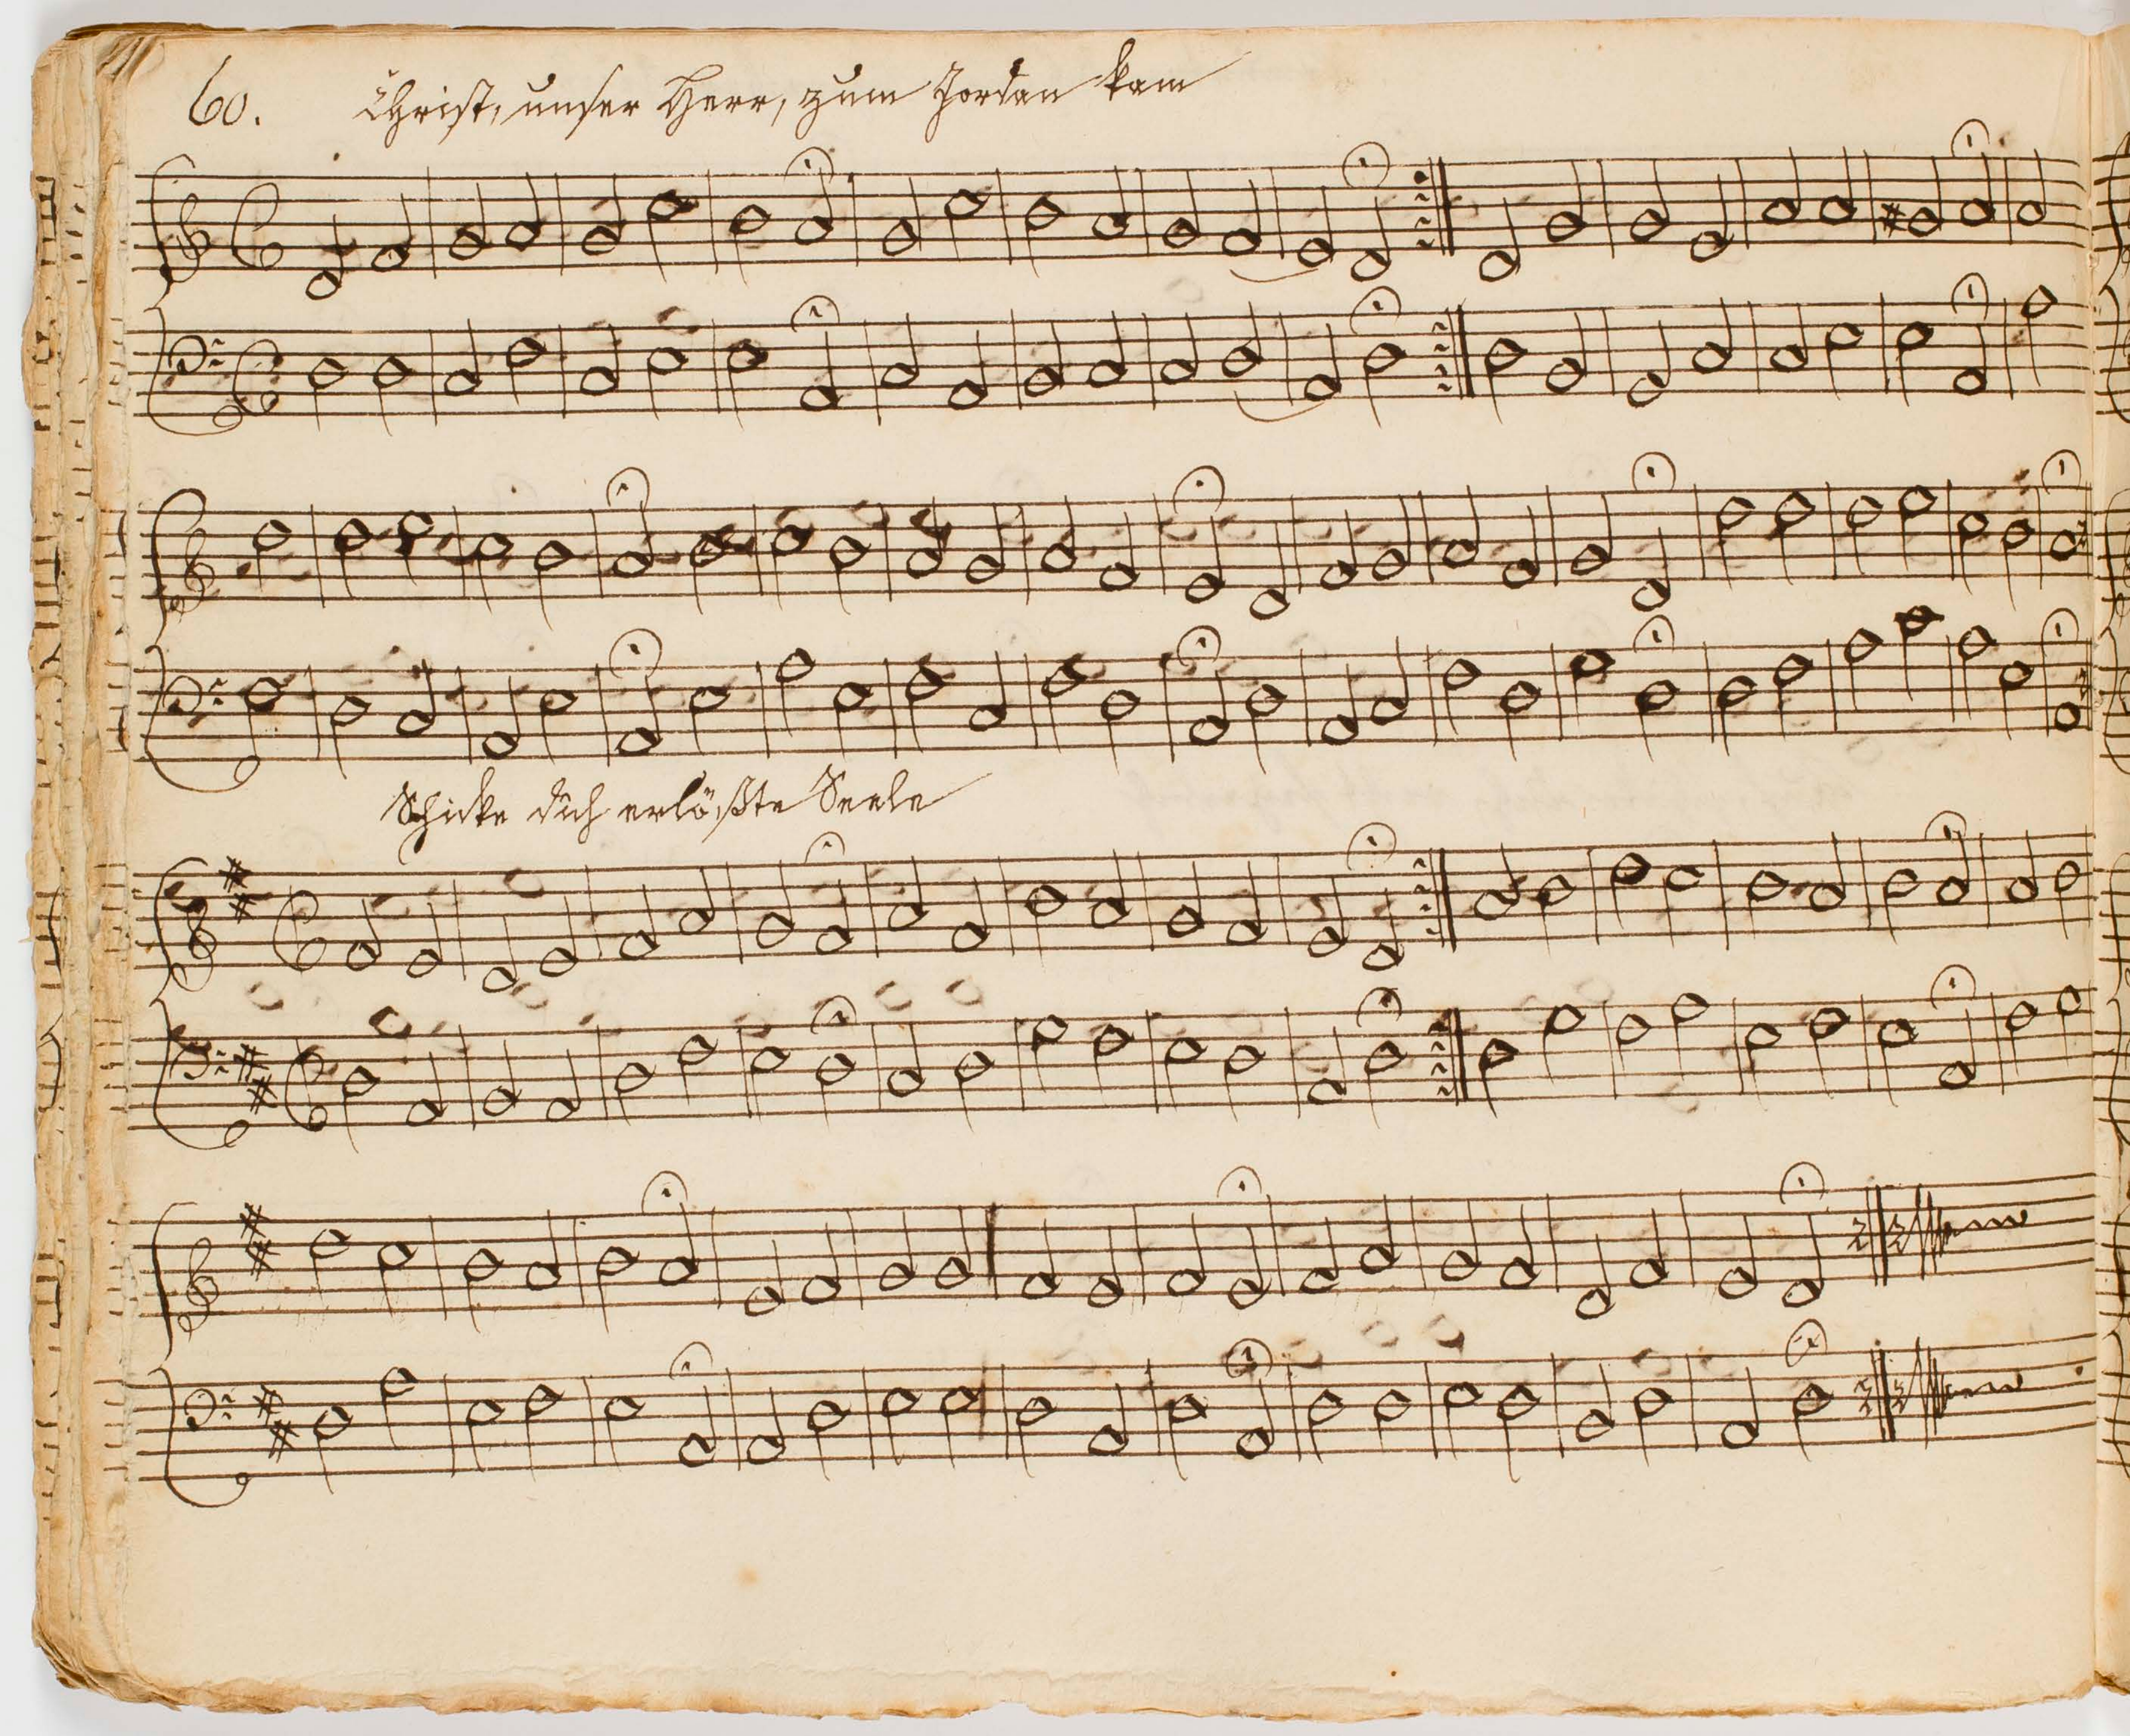 60. Christ, unser Herr, zum Jordan kam
Schicke dich erlößte Seele